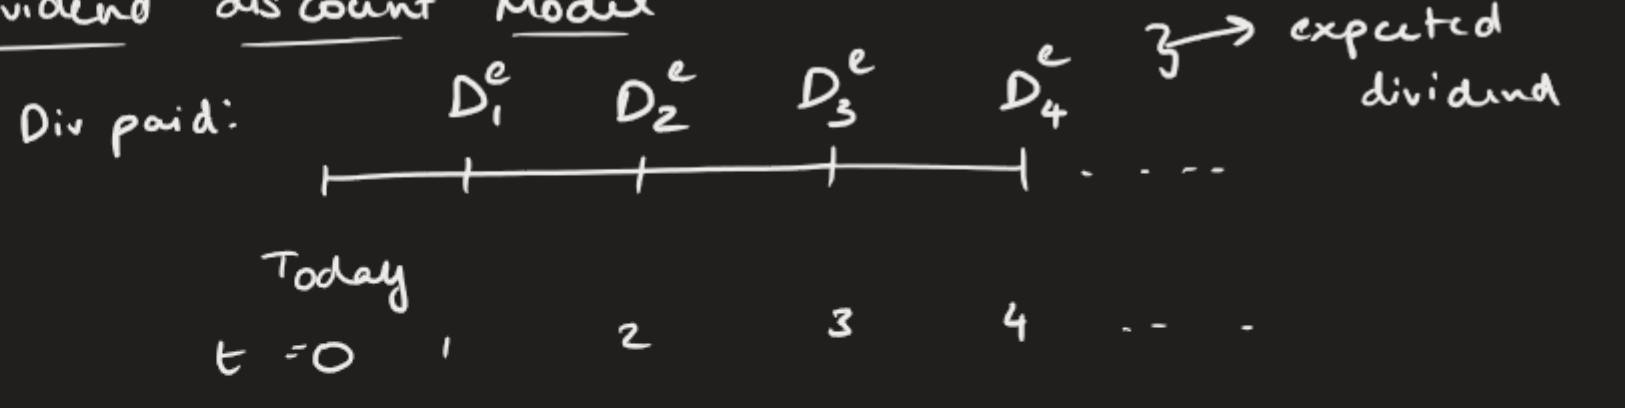 vidend discount Model
Div paid: D₁ᵉ D₂ᵉ D₃ᵉ D₄ᵉ } → expected
dividend
Today
t = 0 1 2 3 4